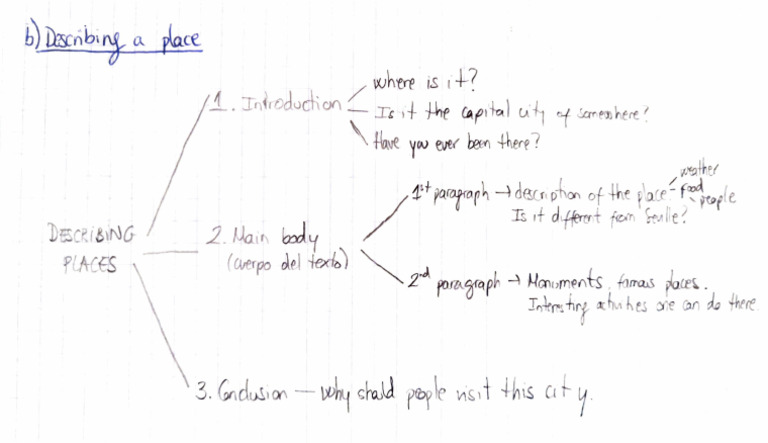 b) Describing a place
1. Introduction
where is it?
Is it the capital city of somewhere?
Have you ever been there?
DESCRIBING
PLACES
2. Main body
(cuerpo del texto)
1st paragraph → description of the place
weather
food
people
Is it different from Seville?
2nd paragraph → Monuments, famous places.
Interesting activities one can do there
3. Conclusion — why should people visit this city.